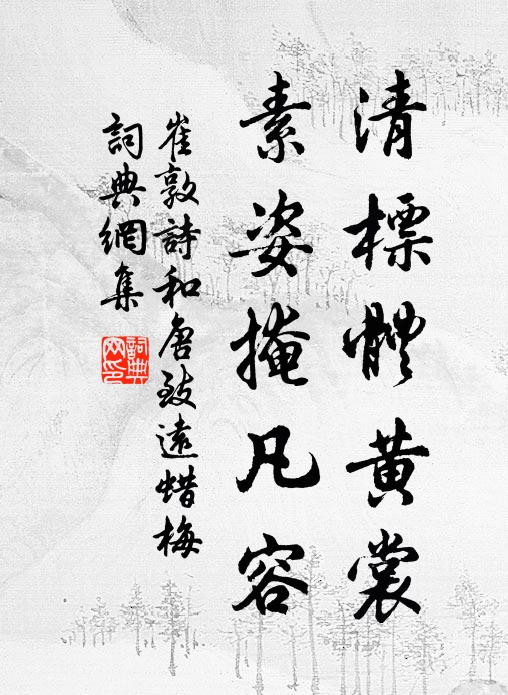 清標體黃裳
素姿掩凡容
崔敦詩和唐致遠蜡梅
詞典網集
詞典
网印